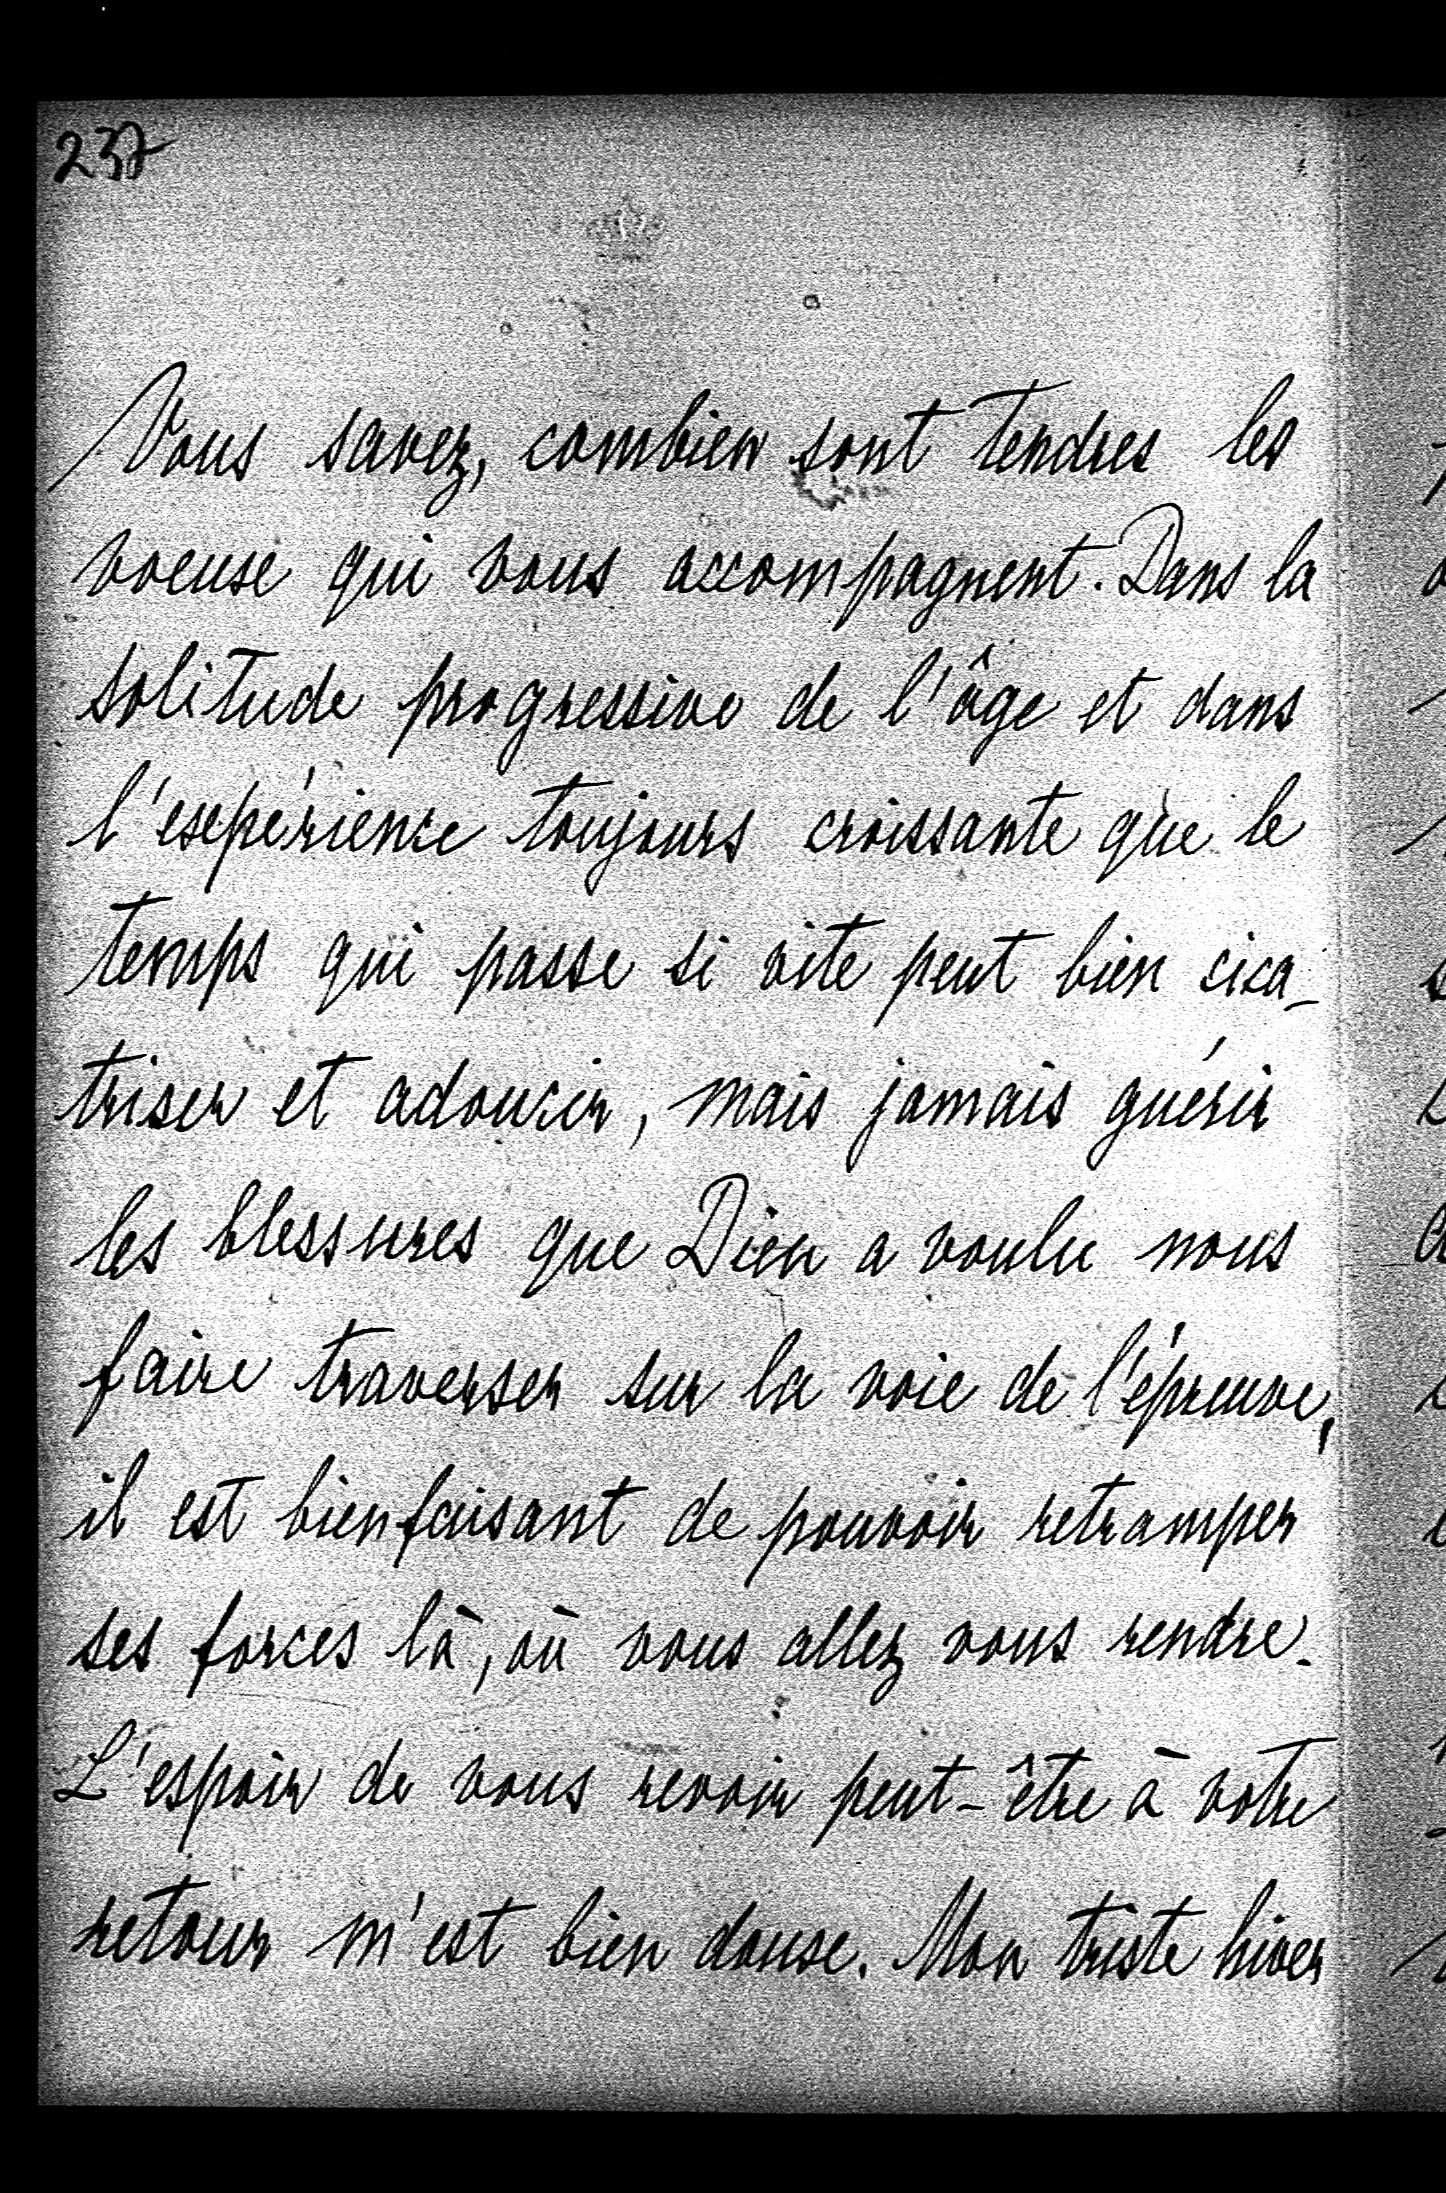 237
Vous savez, combien sont tendres les
voeux qui vous accompagnent. Dans la
solitude progressive de l'âge et dans
l'expérience toujours croissante que le
temps qui passe si vite peut bien cica-
triser et adoucir, mais jamais guérir
les blessures que Dieu a voulu nous
faire traverser sur la voie de l'épreuve,
il est bienfaisant de pouvoir retramper
ses forces là, où vous allez vous rendre.
L'espoir de vous revoir peut-être à votre
retour m'est bien doux. Mon triste hiver